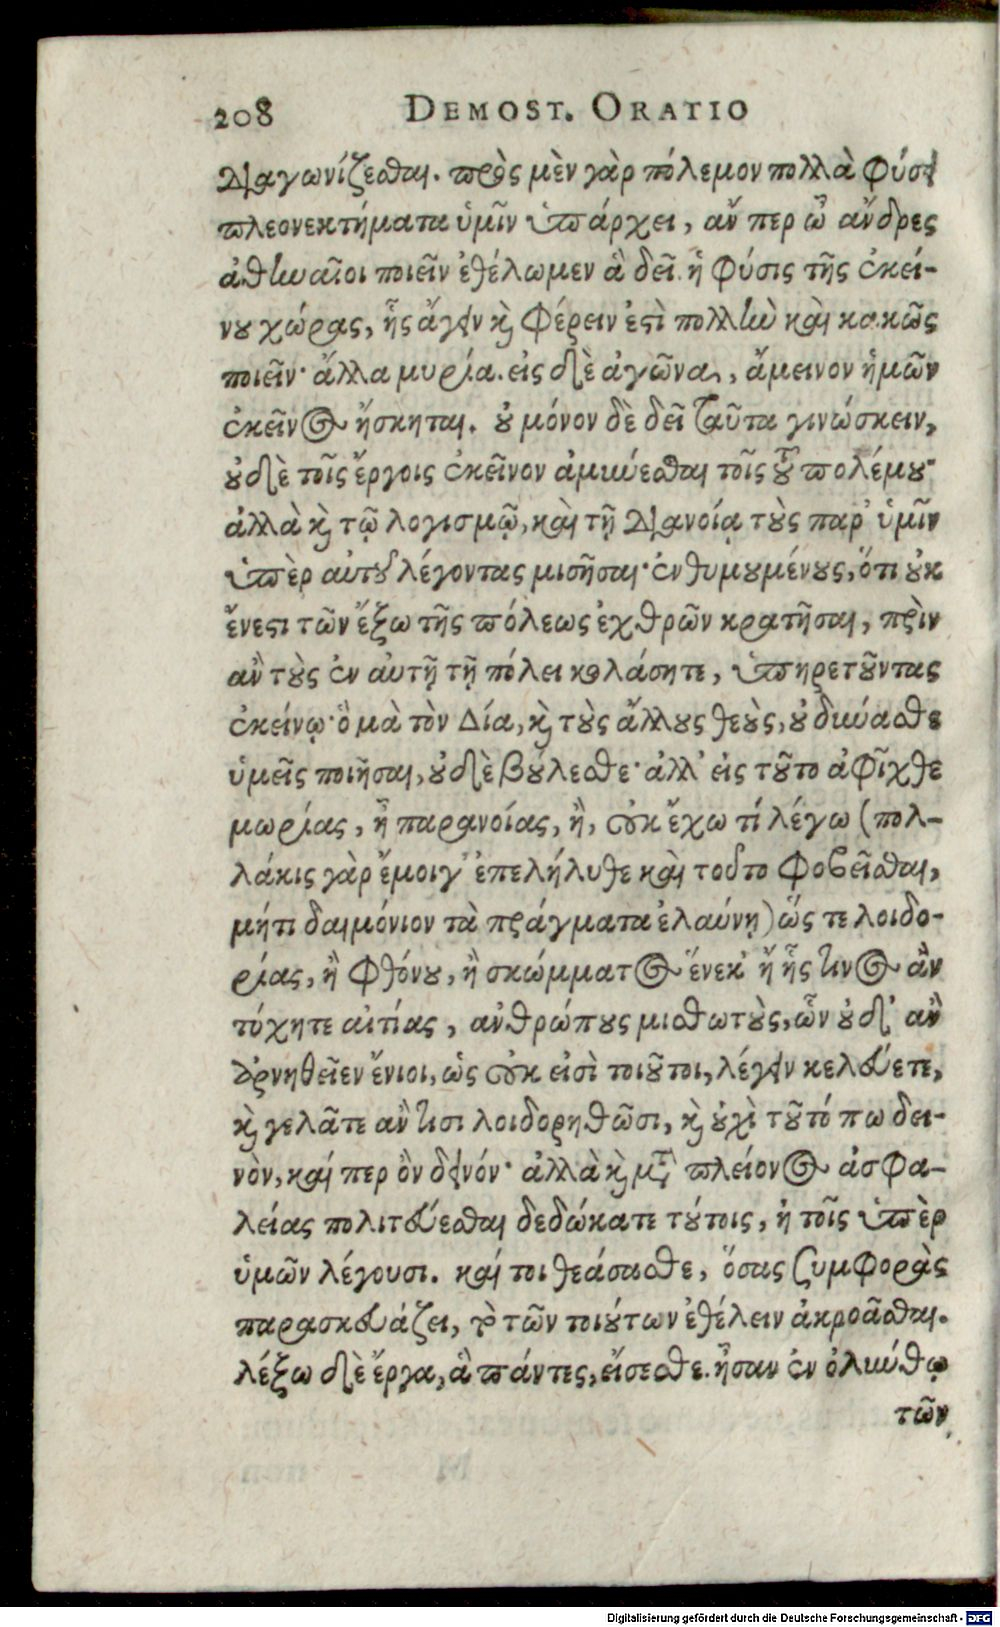 208 DEMOST. ORATIO
διαγωνίζεσθαι. πρὸς μὲν γὰρ πόλεμον πολλὰ φύσει
πλεονεκτήματα ὑμῖν ὑπάρχει, ἄν περ ὦ ἄνδρες
ἀθηναῖοι ποιεῖν ἐθέλωμεν ἃ δεῖ. ἡ φύσις τῆς ἐκεί-
νου χώρας, ἧς ἄγειν καὶ φέρειν ἐστὶ πολλὴν καὶ κακῶς
ποιεῖν· ἄλλα μυρία. εἰς δὲ ἀγῶνα, ἄμεινον ἡμῶν
ἐκεῖνος ἤσκηται. οὐ μόνον δὲ δεῖ ταῦτα γινώσκειν,
οὐδὲ τοῖς ἔργοις ἐκεῖνον ἀμύνεσθαι τοῖς τοῦ πολέμου·
ἀλλὰ καὶ τῷ λογισμῷ, καὶ τῇ διανοίᾳ τοὺς παρ' ὑμῖν
ὑπὲρ αὐτοῦ λέγοντας μισῆσαι· ἐνθυμουμένους, ὅτι οὐκ
ἔνεστι τῶν ἔξω τῆς πόλεως ἐχθρῶν κρατῆσαι, πρὶν
ἂν τοὺς ἐν αὐτῇ τῇ πόλει κολάσητε, ὑπηρετοῦντας
ἐκείνῳ· ὃ μὰ τὸν Δία, καὶ τοὺς ἄλλους θεοὺς, οὐ δύνασθε
ὑμεῖς ποιῆσαι, οὐδὲ βούλεσθε· ἀλλ' εἰς τοῦτο ἀφῖχθε
μωρίας, ἢ παρανοίας, ἢ, οὐκ ἔχω τί λέγω (πολ-
λάκις γὰρ ἔμοιγ' ἐπελήλυθε καὶ τοῦτο φοβεῖσθαι,
μήτι δαιμόνιον τὰ πράγματα ἐλαύνῃ) ὥς τε λοιδο-
ρίας, ἢ φθόνου, ἢ σκώμματος ἕνεκ' ἤ ἧς τινος ἂν
τύχητε αἰτίας, ἀνθρώπους μισθωτοὺς, ὧν οὐδ' ἂν
ἀρνηθεῖεν ἔνιοι, ὡς οὐκ εἰσὶ τοιοῦτοι, λέγειν κελεύετε,
καὶ γελᾶτε ἄν τισι λοιδορηθῶσι, καὶ οὐχὶ τοῦτό πω δει-
νὸν, καί περ ὂν δεινόν· ἀλλὰ καὶ μετὰ πλείονος ἀσφα-
λείας πολιτεύεσθαι δεδώκατε τούτοις, ἢ τοῖς ὑπὲρ
ὑμῶν λέγουσι. καί τοι θεάσασθε, ὅσας συμφορὰς
παρασκευάζει, τὸ τῶν τοιούτων ἐθέλειν ἀκροᾶσθαι.
λέξω δὲ ἔργα, ἃ πάντες, εἴσεσθε. ἦσαν ἐν ὀλύνθῳ
τῶν
Digitalisierung gefördert durch die Deutsche Forschungsgemeinschaft - DFG